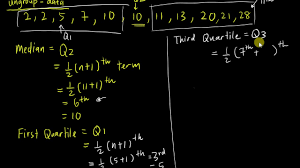 ungroup - data
2, 2, 5, 7, 10, 10, 11, 13, 20, 21, 28
Q1
Median = Q2
= 1/2 (n+1)th term
= 1/2 (11+1)th
= 6th
= 10
First Quartile = Q1
= 1/2 (n+1)th
= 1/2 (5+1)th = 3rd
= 5
Third Quartile = Q3
= 1/2 (7th + )th